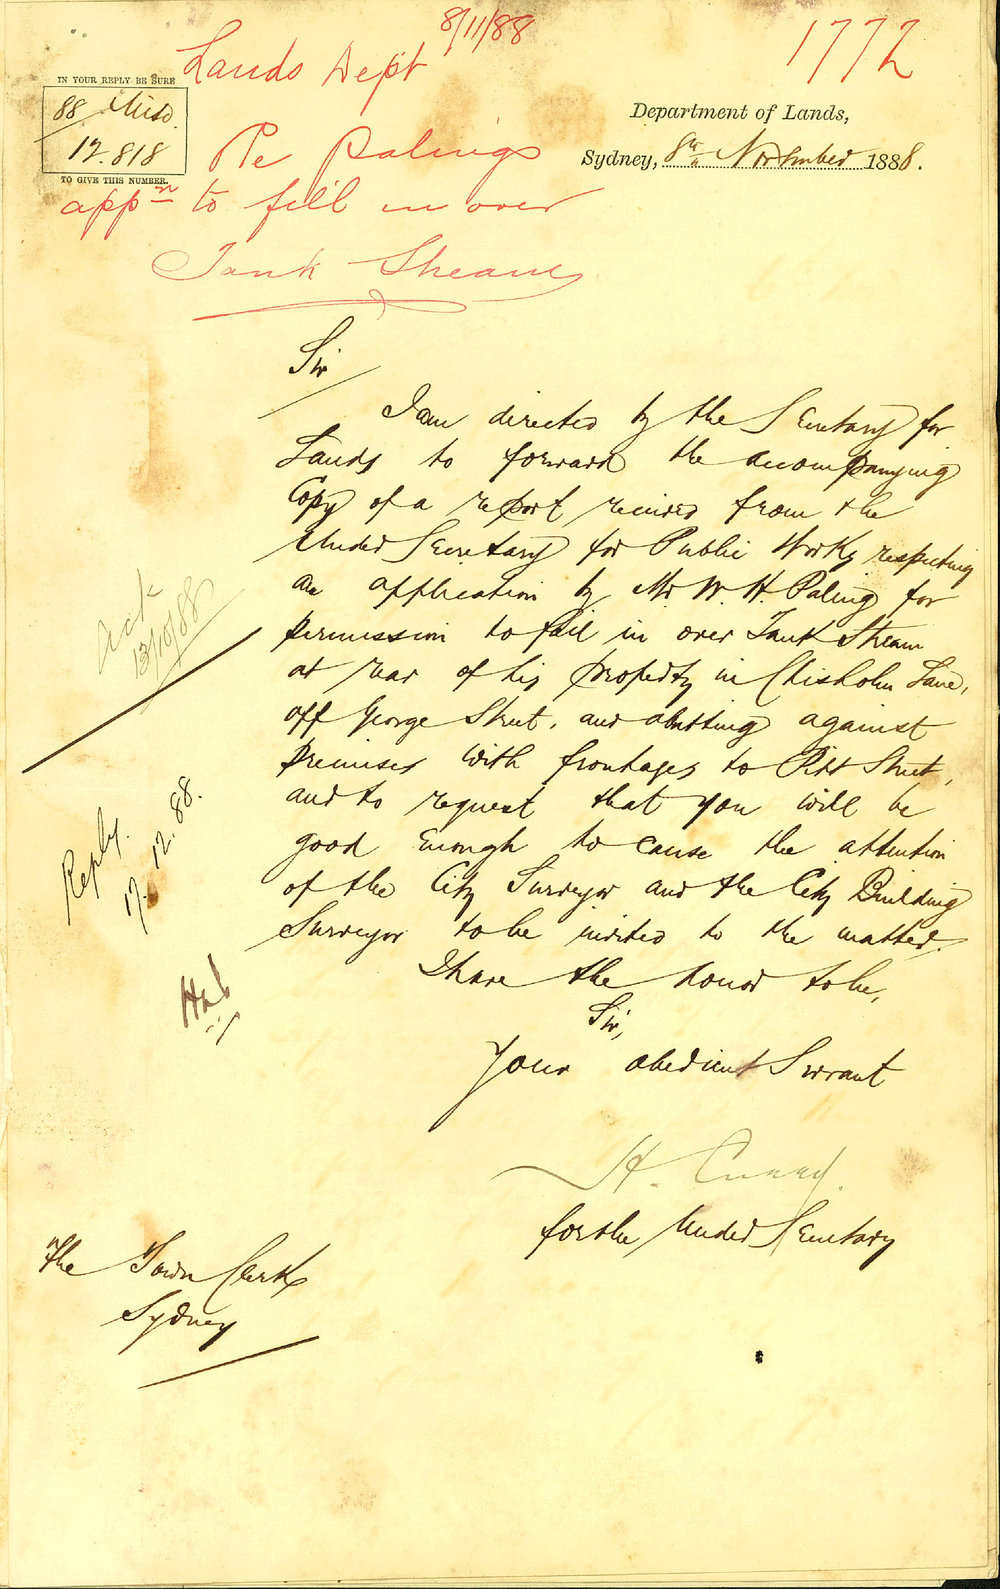 8/11/88
1772
Lands Dept
IN YOUR REPLY BE SURE
88 Misc.
12.818
TO GIVE THIS NUMBER.
Re Palings
appn to fill in over
Tank Stream
Department of Lands,
Sydney, 8th November 1888.
Sir
I am directed by the Secretary for
Lands to forward the accompanying
Copy of a report received from the
Under Secretary for Public Works respecting
an application by Mr. W. H. Paling for
permission to fill in over Tank Stream
at rear of his property in Chisholm Lane,
off George Street, and abutting against
premises with frontages to Pitt Street,
and to request that you will be
good enough to cause the attention
of the City Surveyor and the City Building
Surveyor to be invited to the matter.
I have the honor to be,
Sir,
Your obedient Servant
H. Curry.
for the Under Secretary
Ack
13/10/88
Reply.
17.12.88.
The Town Clerk
Sydney